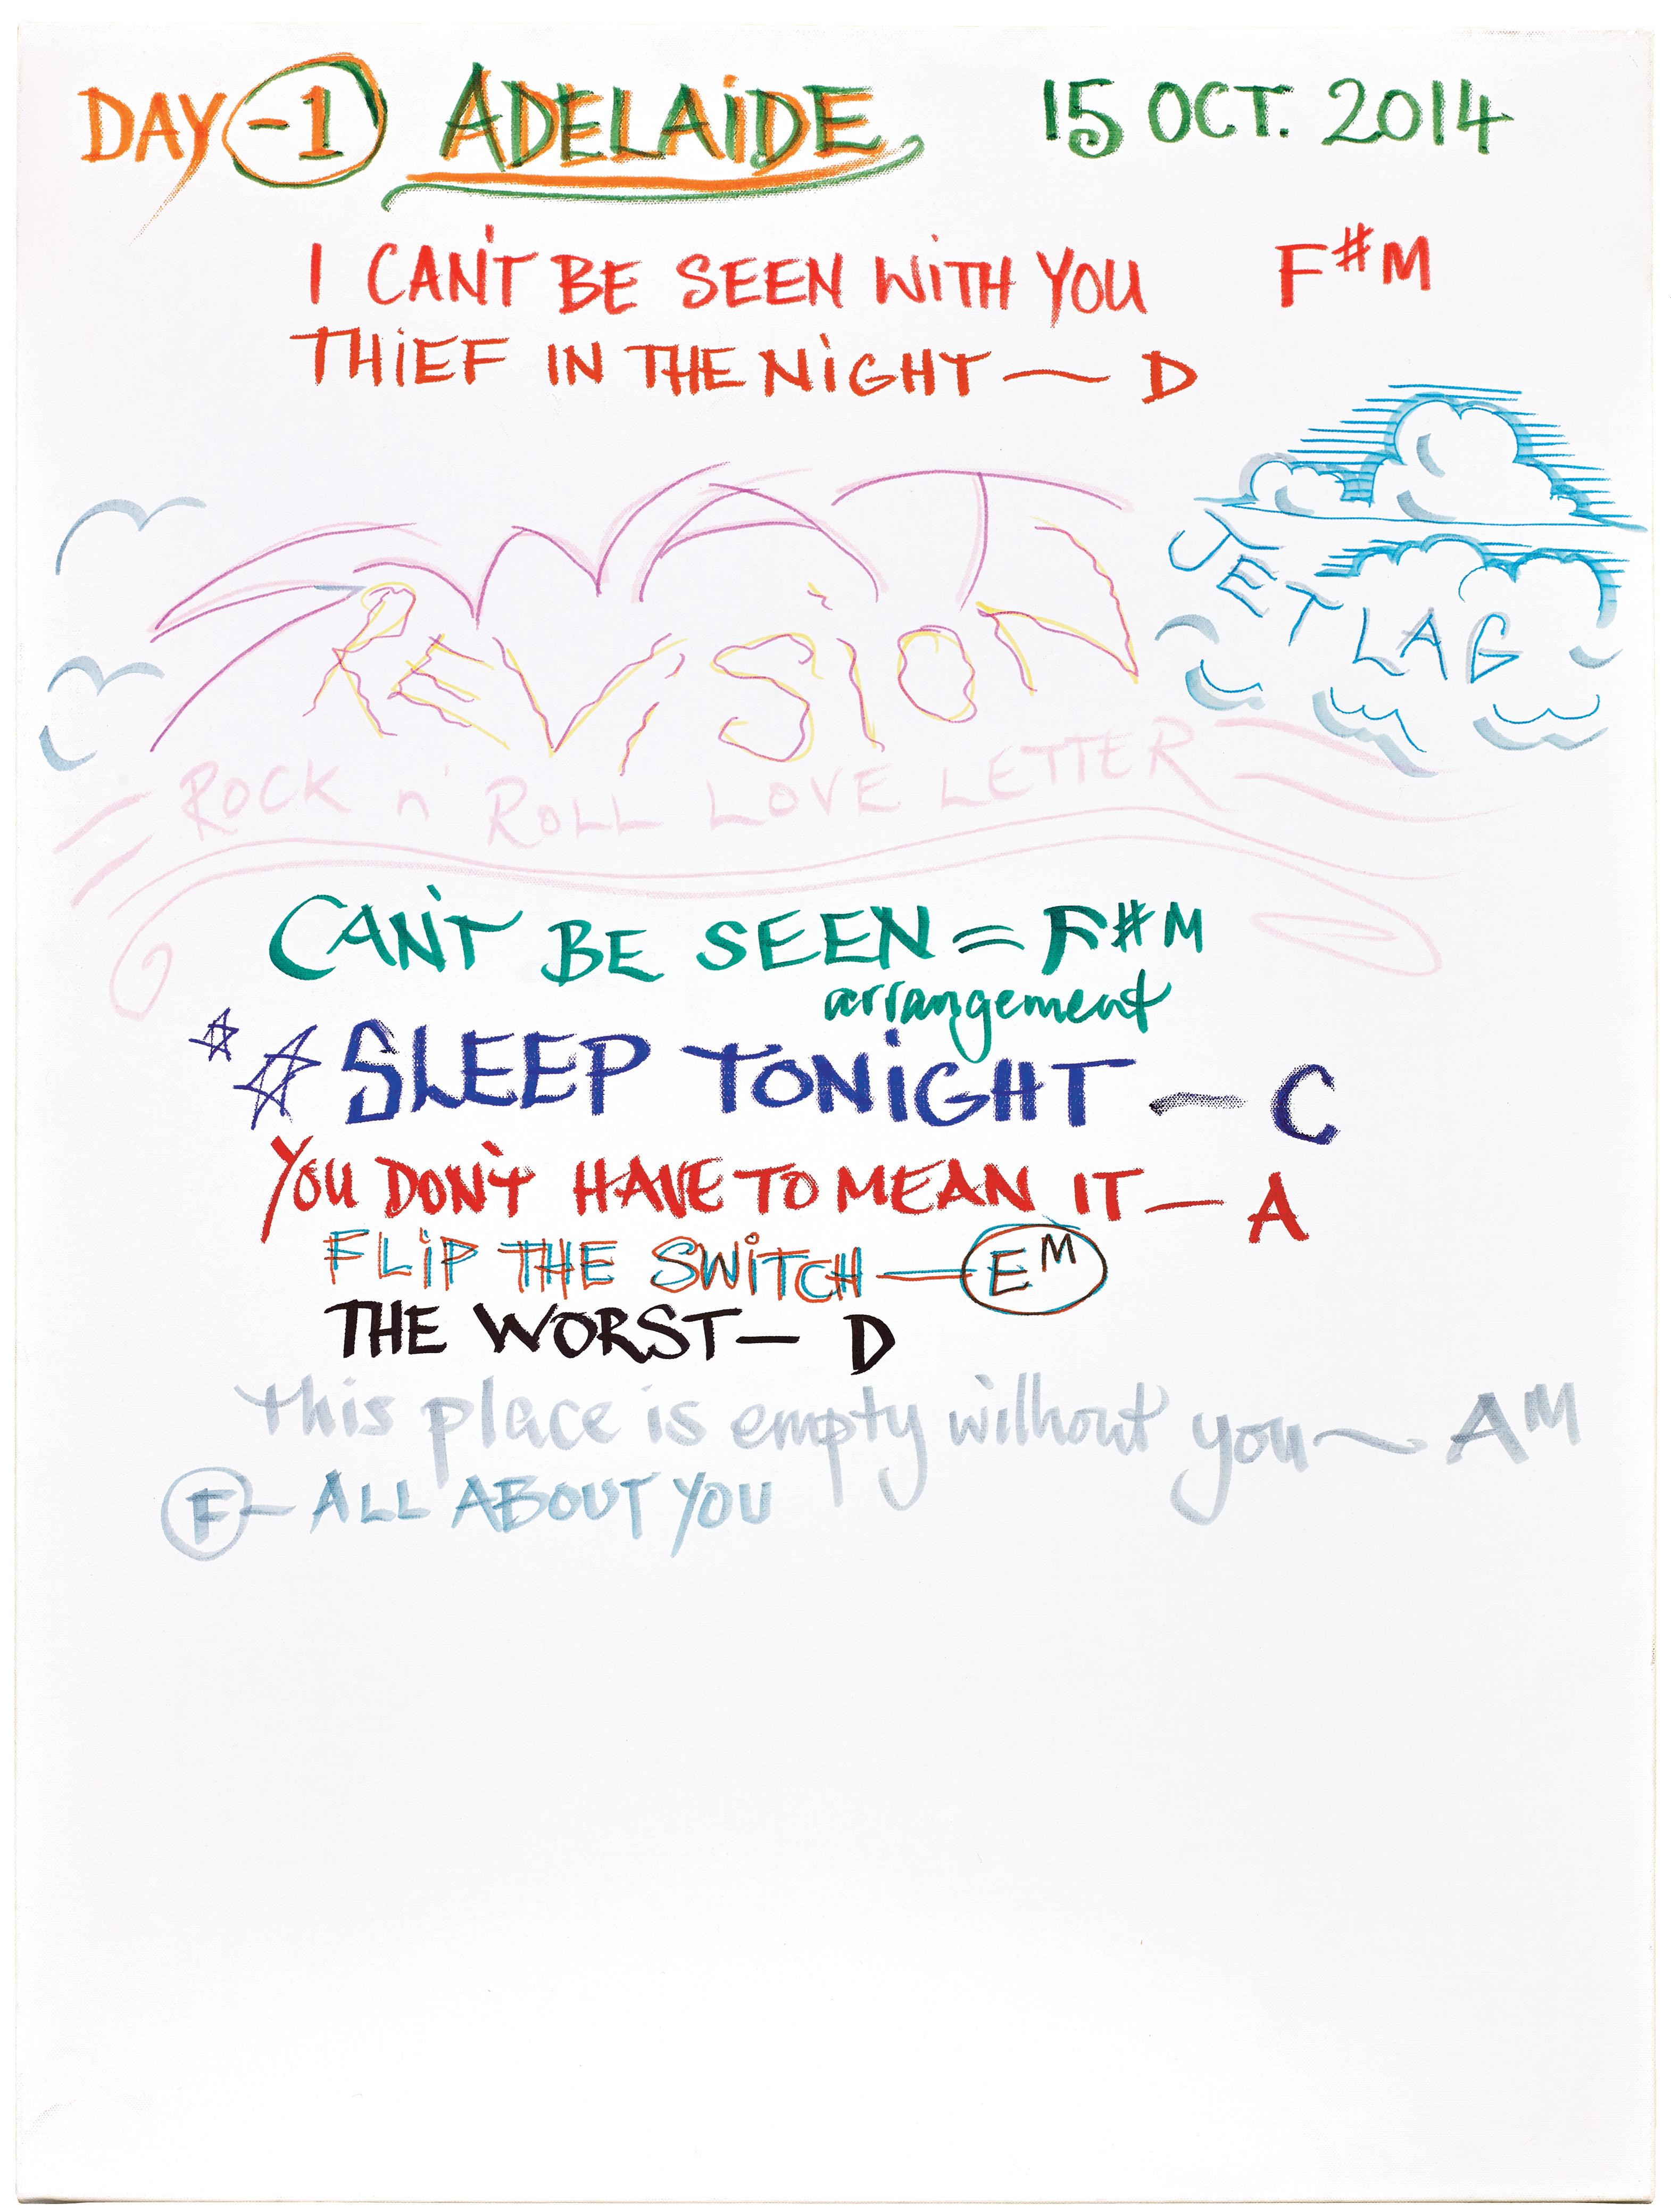 DAY -1 ADELAIDE 15 OCT. 2014
I CAN'T BE SEEN WITH YOU F#M
THIEF IN THE NIGHT — D
JET LAG
REVISION
ROCK n' ROLL LOVE LETTER
CAN'T BE SEEN = F#M
arrangement
SLEEP TONIGHT — C
YOU DON'T HAVE TO MEAN IT — A
FLIP THE SWITCH — EM
THE WORST — D
this place is empty without you ~ AM
F — ALL ABOUT YOU